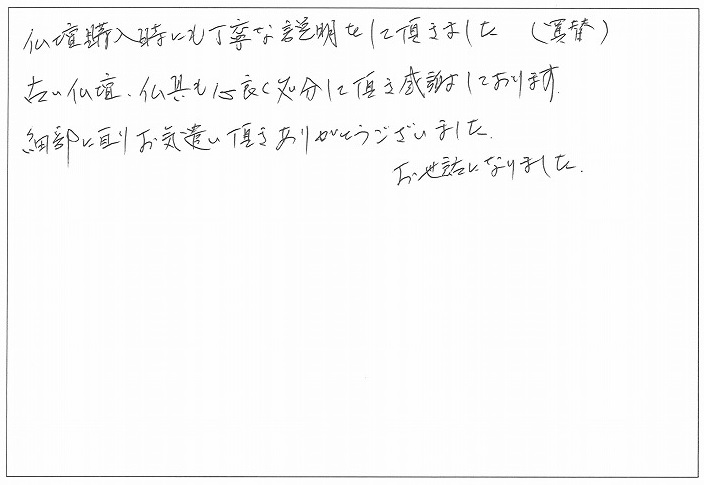 仏壇購入時にも丁寧な説明をして頂きました (買替)
古い仏壇、仏具も心良く処分して頂き感謝しております.
細部に亘りお気遣い頂きありがとうございました.
お世話になりました.